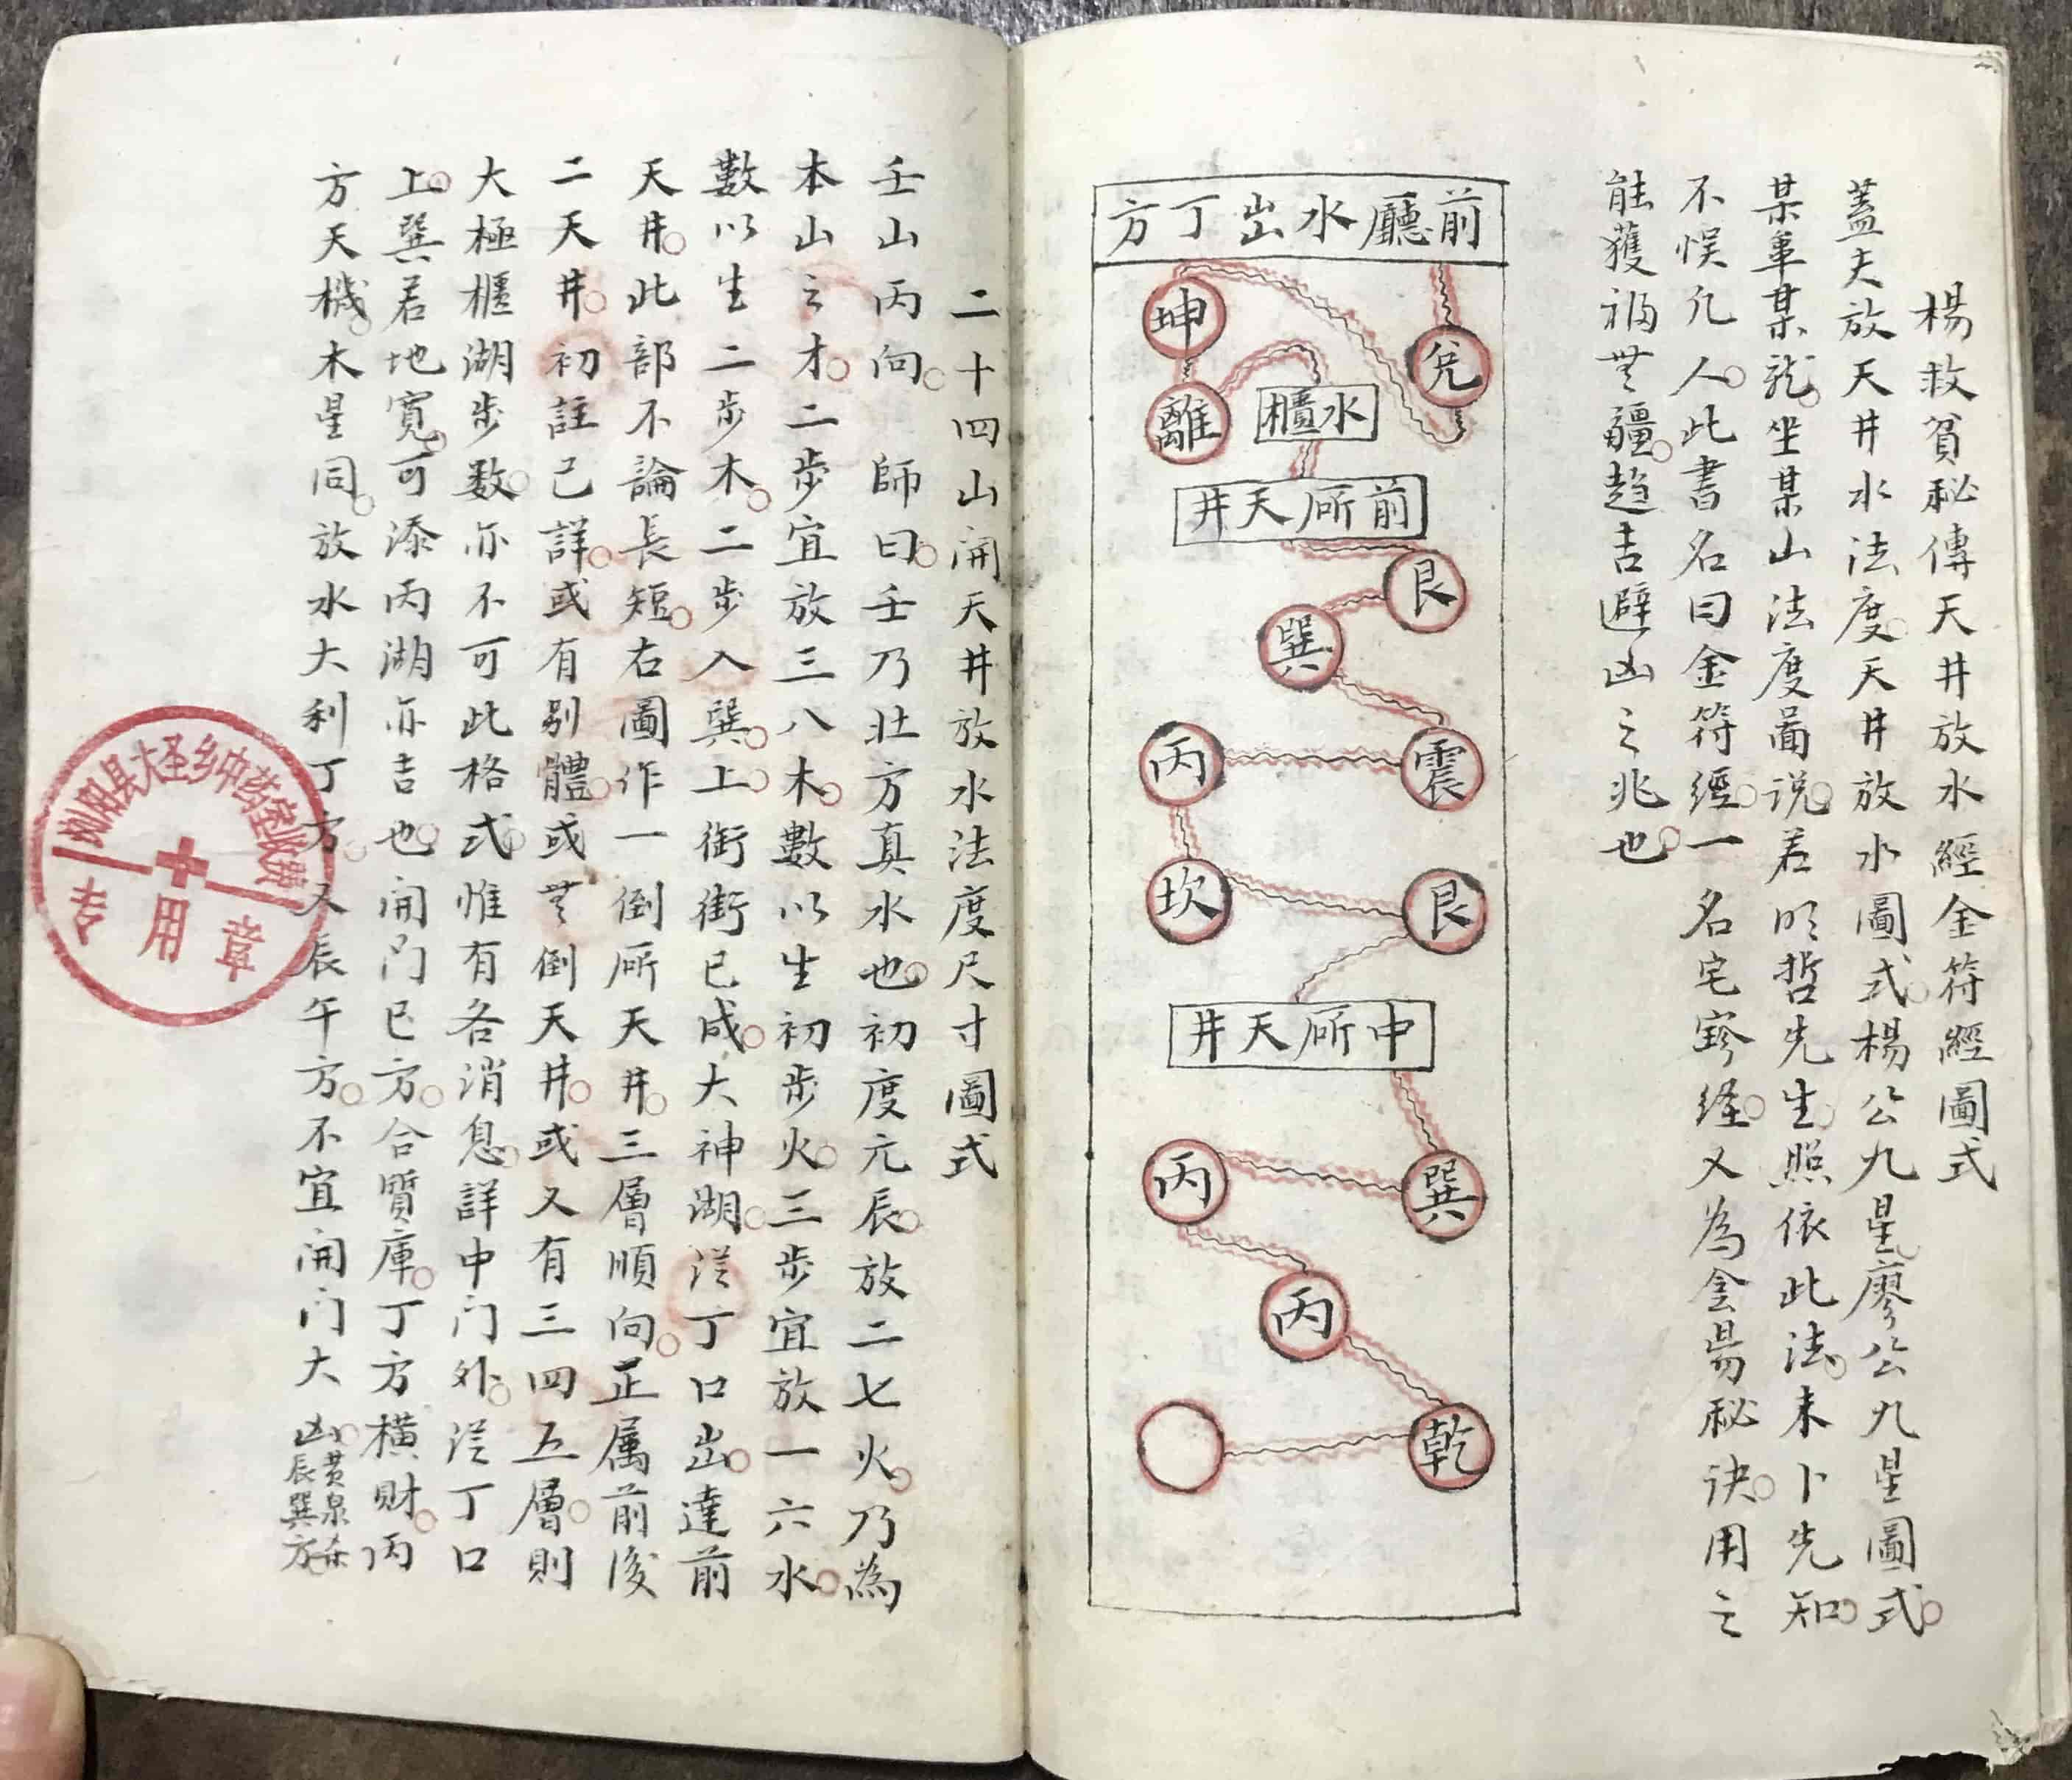 楊救貧秘傳天井放水經金符經圖式
蓋夫放天井水法度天井放水圖式楊公九星廖公九星圖式
某單某龍坐某山法度畵说若明哲先生照依此法未卜先知
不悮凢人此書名曰金符經一名宅寳經又為金昜秘诀用之
能獲福無疆趋吉避凶之兆也
前廳水出丁方
坤
兌
離
水櫃
前㕔天井
艮
巽
丙
震
坎
艮
中㕔天井
丙
巽
丙
乾
二十四山開天井放水法度尺寸圖式
壬山丙向師曰壬乃壮方真水也初度元辰放二七火乃為
本山之才二步宜放三八木數以生初步火三步宜放一六水
數以生二步木二步入巽上街街已成大神湖從丁口出達前
天井此部不論長短右圖作一倒㕔天井三層順向正属前後
二天井初註已詳或有别體或無倒天井或又有三四五層則
大極櫃湖步数亦不可此格式惟有各消息詳中门外從丁口
上巽若地寬可添丙湖亦吉也開门巳方合質庫丁方横財丙
方天機木星同放水大利丁方又辰午方不宜開门大凶黄泉杀
辰巽方
浏阳县大圣乡中药室收费
专用章